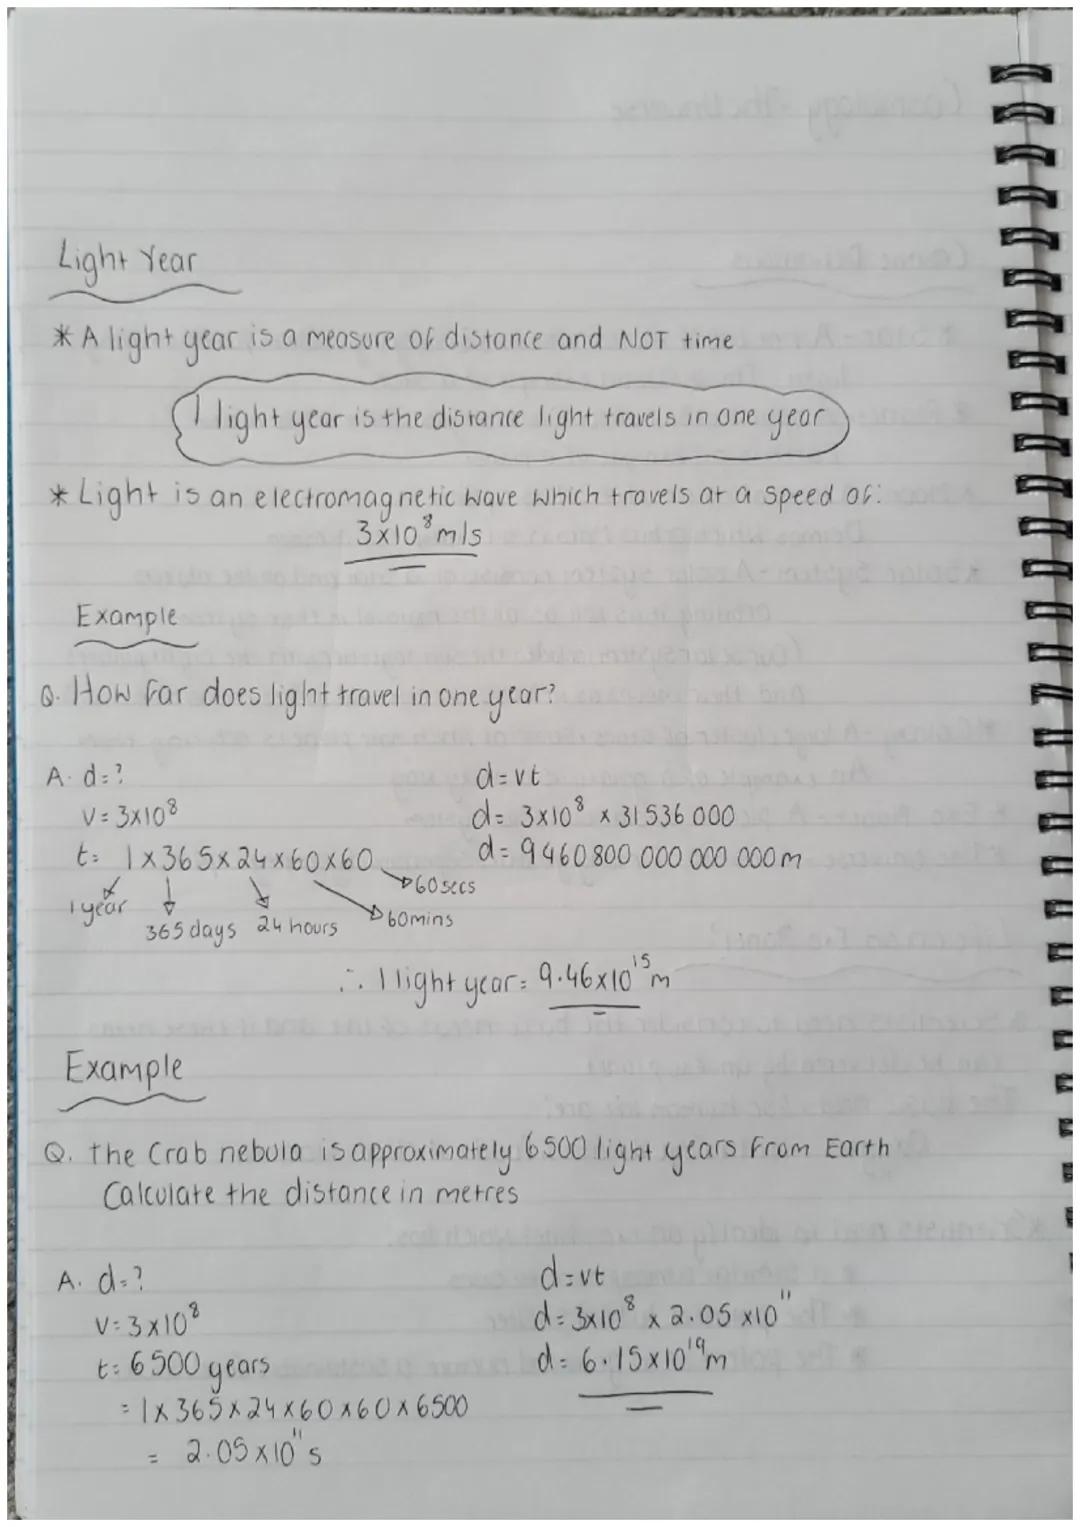 Light Year
* A light year is a measure of distance and NOT time
1 light year is the distance light travels in one year
* Light is an electromagnetic wave which travels at a speed of:
3x10⁸ m/s
Example
Q. How far does light travel in one year?
A. d=?
v=3x10⁸
t= 1x365x24x60x60
1 year
365 days
24 hours
60mins
60secs
d=vt
d= 3x10⁸ x 31536 000
d= 9460800 000 000 000m
∴ 1 light year= 9.46x10¹⁵m
Example
Q. the Crab nebula is approximately 6500 light years From Earth
Calculate the distance in metres
A. d=?
v=3x10⁸
t= 6500 years
= 1x365x24x60x60x6500
= 2.05x10¹¹s
d=vt
d= 3x10⁸ x 2.05 x10¹¹
d= 6.15x10¹⁹m